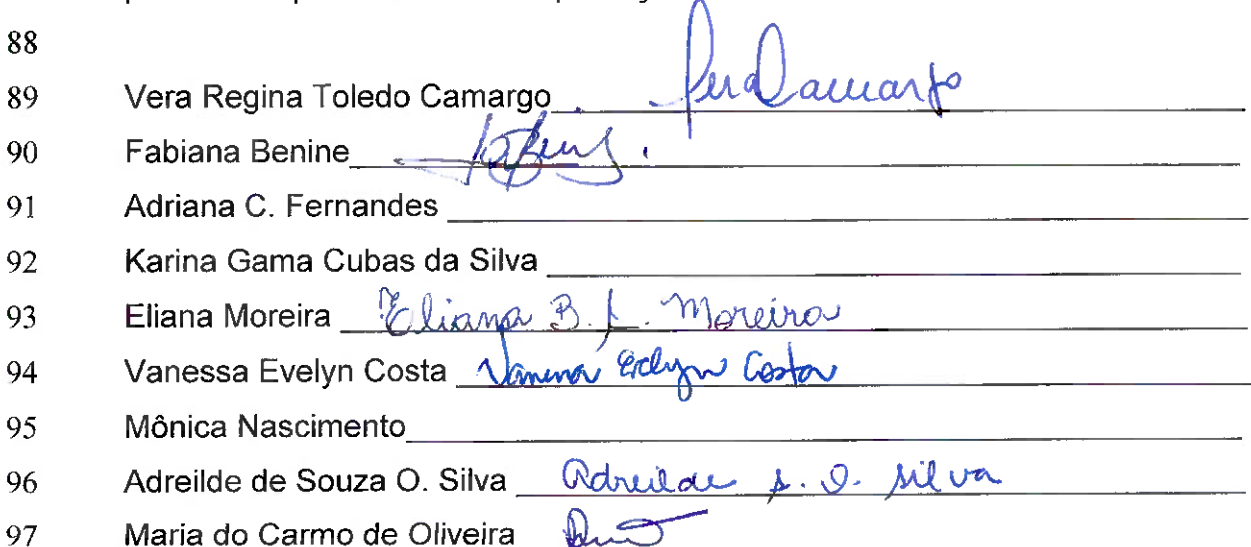 88
89 Vera Regina Toledo Camargo Vera Camargo
90 Fabiana Benine
91 Adriana C. Fernandes
92 Karina Gama Cubas da Silva
93 Eliana Moreira Eliana B. L. Moreira
94 Vanessa Evelyn Costa Vanessa Evelyn Costa
95 Mônica Nascimento
96 Adreilde de Souza O. Silva Adreilde S. O. Silva
97 Maria do Carmo de Oliveira